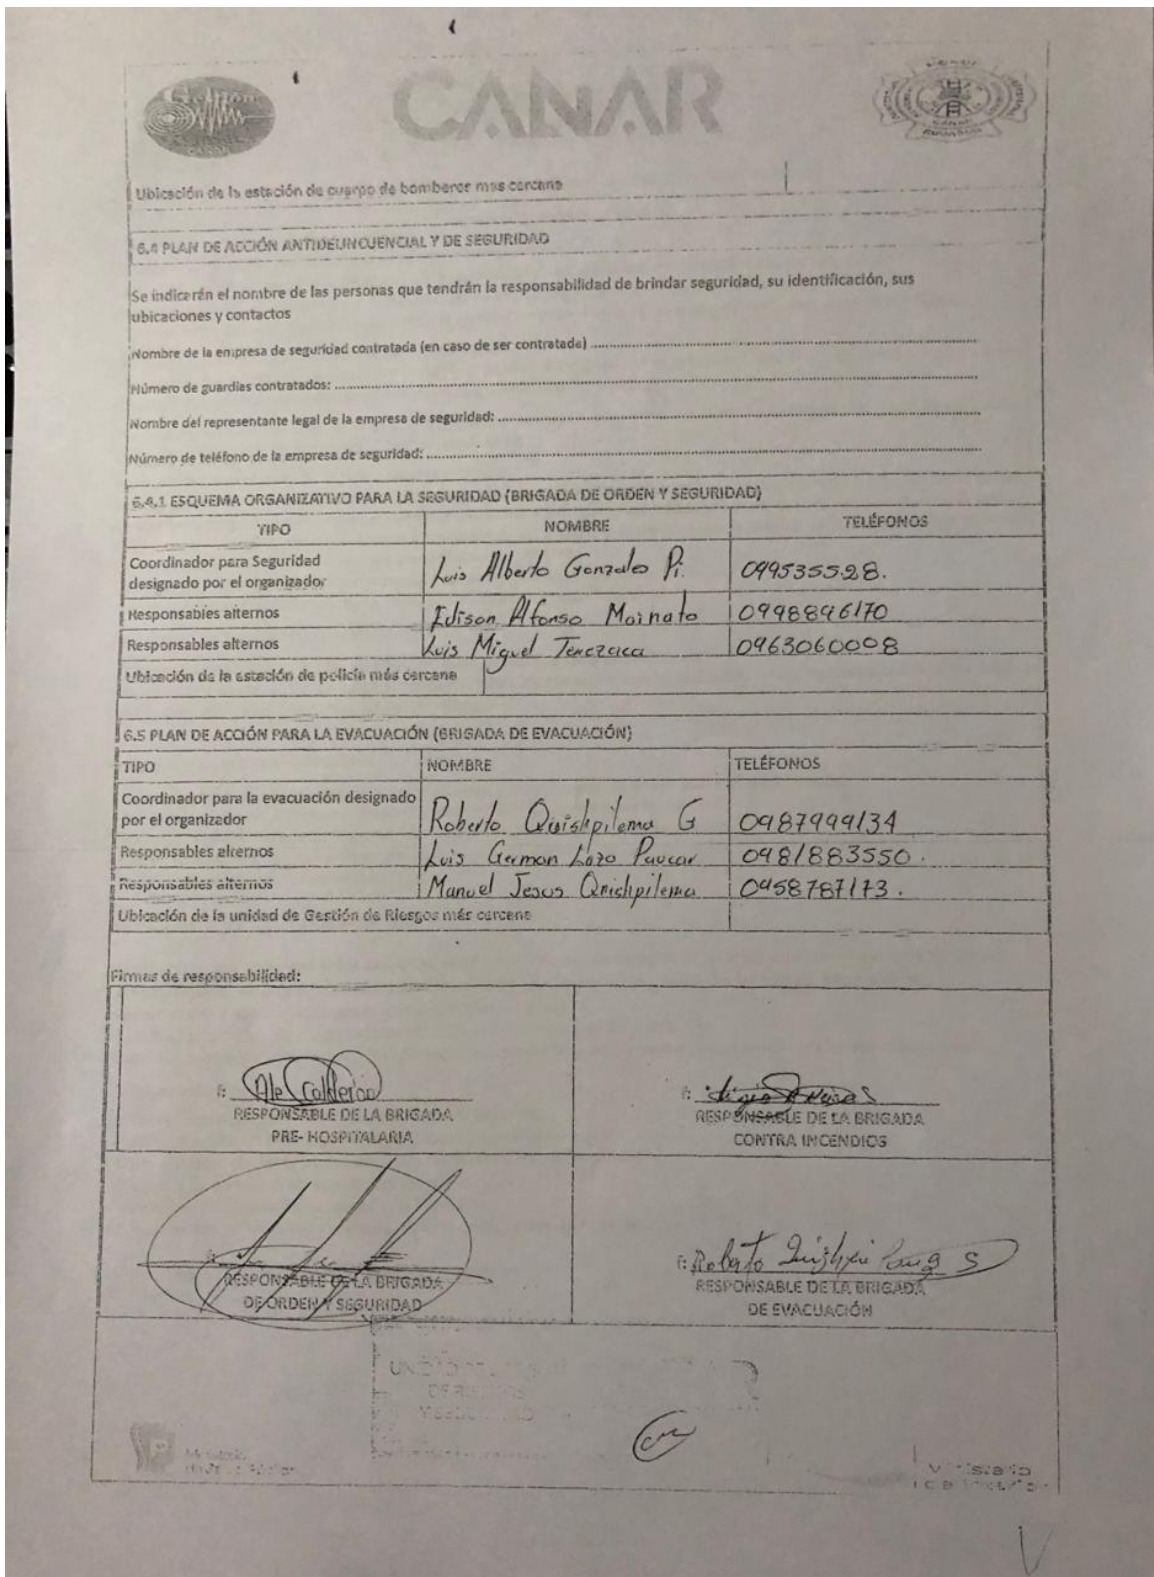 CAÑAR
Ubicación de la estación de cuerpo de bomberos mas cercana
6.4 PLAN DE ACCIÓN ANTIDELINCUENCIAL Y DE SEGURIDAD
Se indicarán el nombre de las personas que tendrán la responsabilidad de brindar seguridad, su identificación, sus
ubicaciones y contactos
Nombre de la empresa de seguridad contratada (en caso de ser contratada)
Número de guardias contratados:
Nombre del representante legal de la empresa de seguridad:
Número de teléfono de la empresa de seguridad:
6.4.1 ESQUEMA ORGANIZATIVO PARA LA SEGURIDAD (BRIGADA DE ORDEN Y SEGURIDAD)
TIPO NOMBRE TELÉFONOS
Coordinador para Seguridad
designado por el organizador Luis Alberto Gonzalo Pi. 099535528.
Responsables alternos Edison Alfonso Mainato 0998896170
Responsables alternos Luis Miguel Tenezaca 0963060008
Ubicación de la estación de policía más cercana
6.5 PLAN DE ACCIÓN PARA LA EVACUACIÓN (BRIGADA DE EVACUACIÓN)
TIPO NOMBRE TELÉFONOS
Coordinador para la evacuación designado
por el organizador Roberto Quishpilema G 0987999134
Responsables alternos Luis German Lazo Paucar 0981883550.
Responsables alternos Manuel Jesus Quishpilema 0958787173.
Ubicación de la unidad de Gestión de Riesgos más cercana
Firmas de responsabilidad:
f: Ale Calderón
RESPONSABLE DE LA BRIGADA
PRE- HOSPITALARIA
f:
RESPONSABLE DE LA BRIGADA
CONTRA INCENDIOS
f:
RESPONSABLE DE LA BRIGADA
DE ORDEN Y SEGURIDAD
f: Roberto
RESPONSABLE DE LA BRIGADA
DE EVACUACIÓN